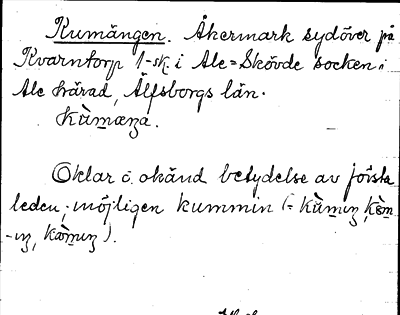 Kumängen. Åkermark sydöver på
Kvarntorp 1-sk. i Ale-Skövde socken i
Ale härad, Älfsborgs län.
kùmæŋa.
Oklar o. okänd betydelse av första
leden; möjligen kummin (= kùmıŋ, kòm
-ıŋ, kòmıŋ).